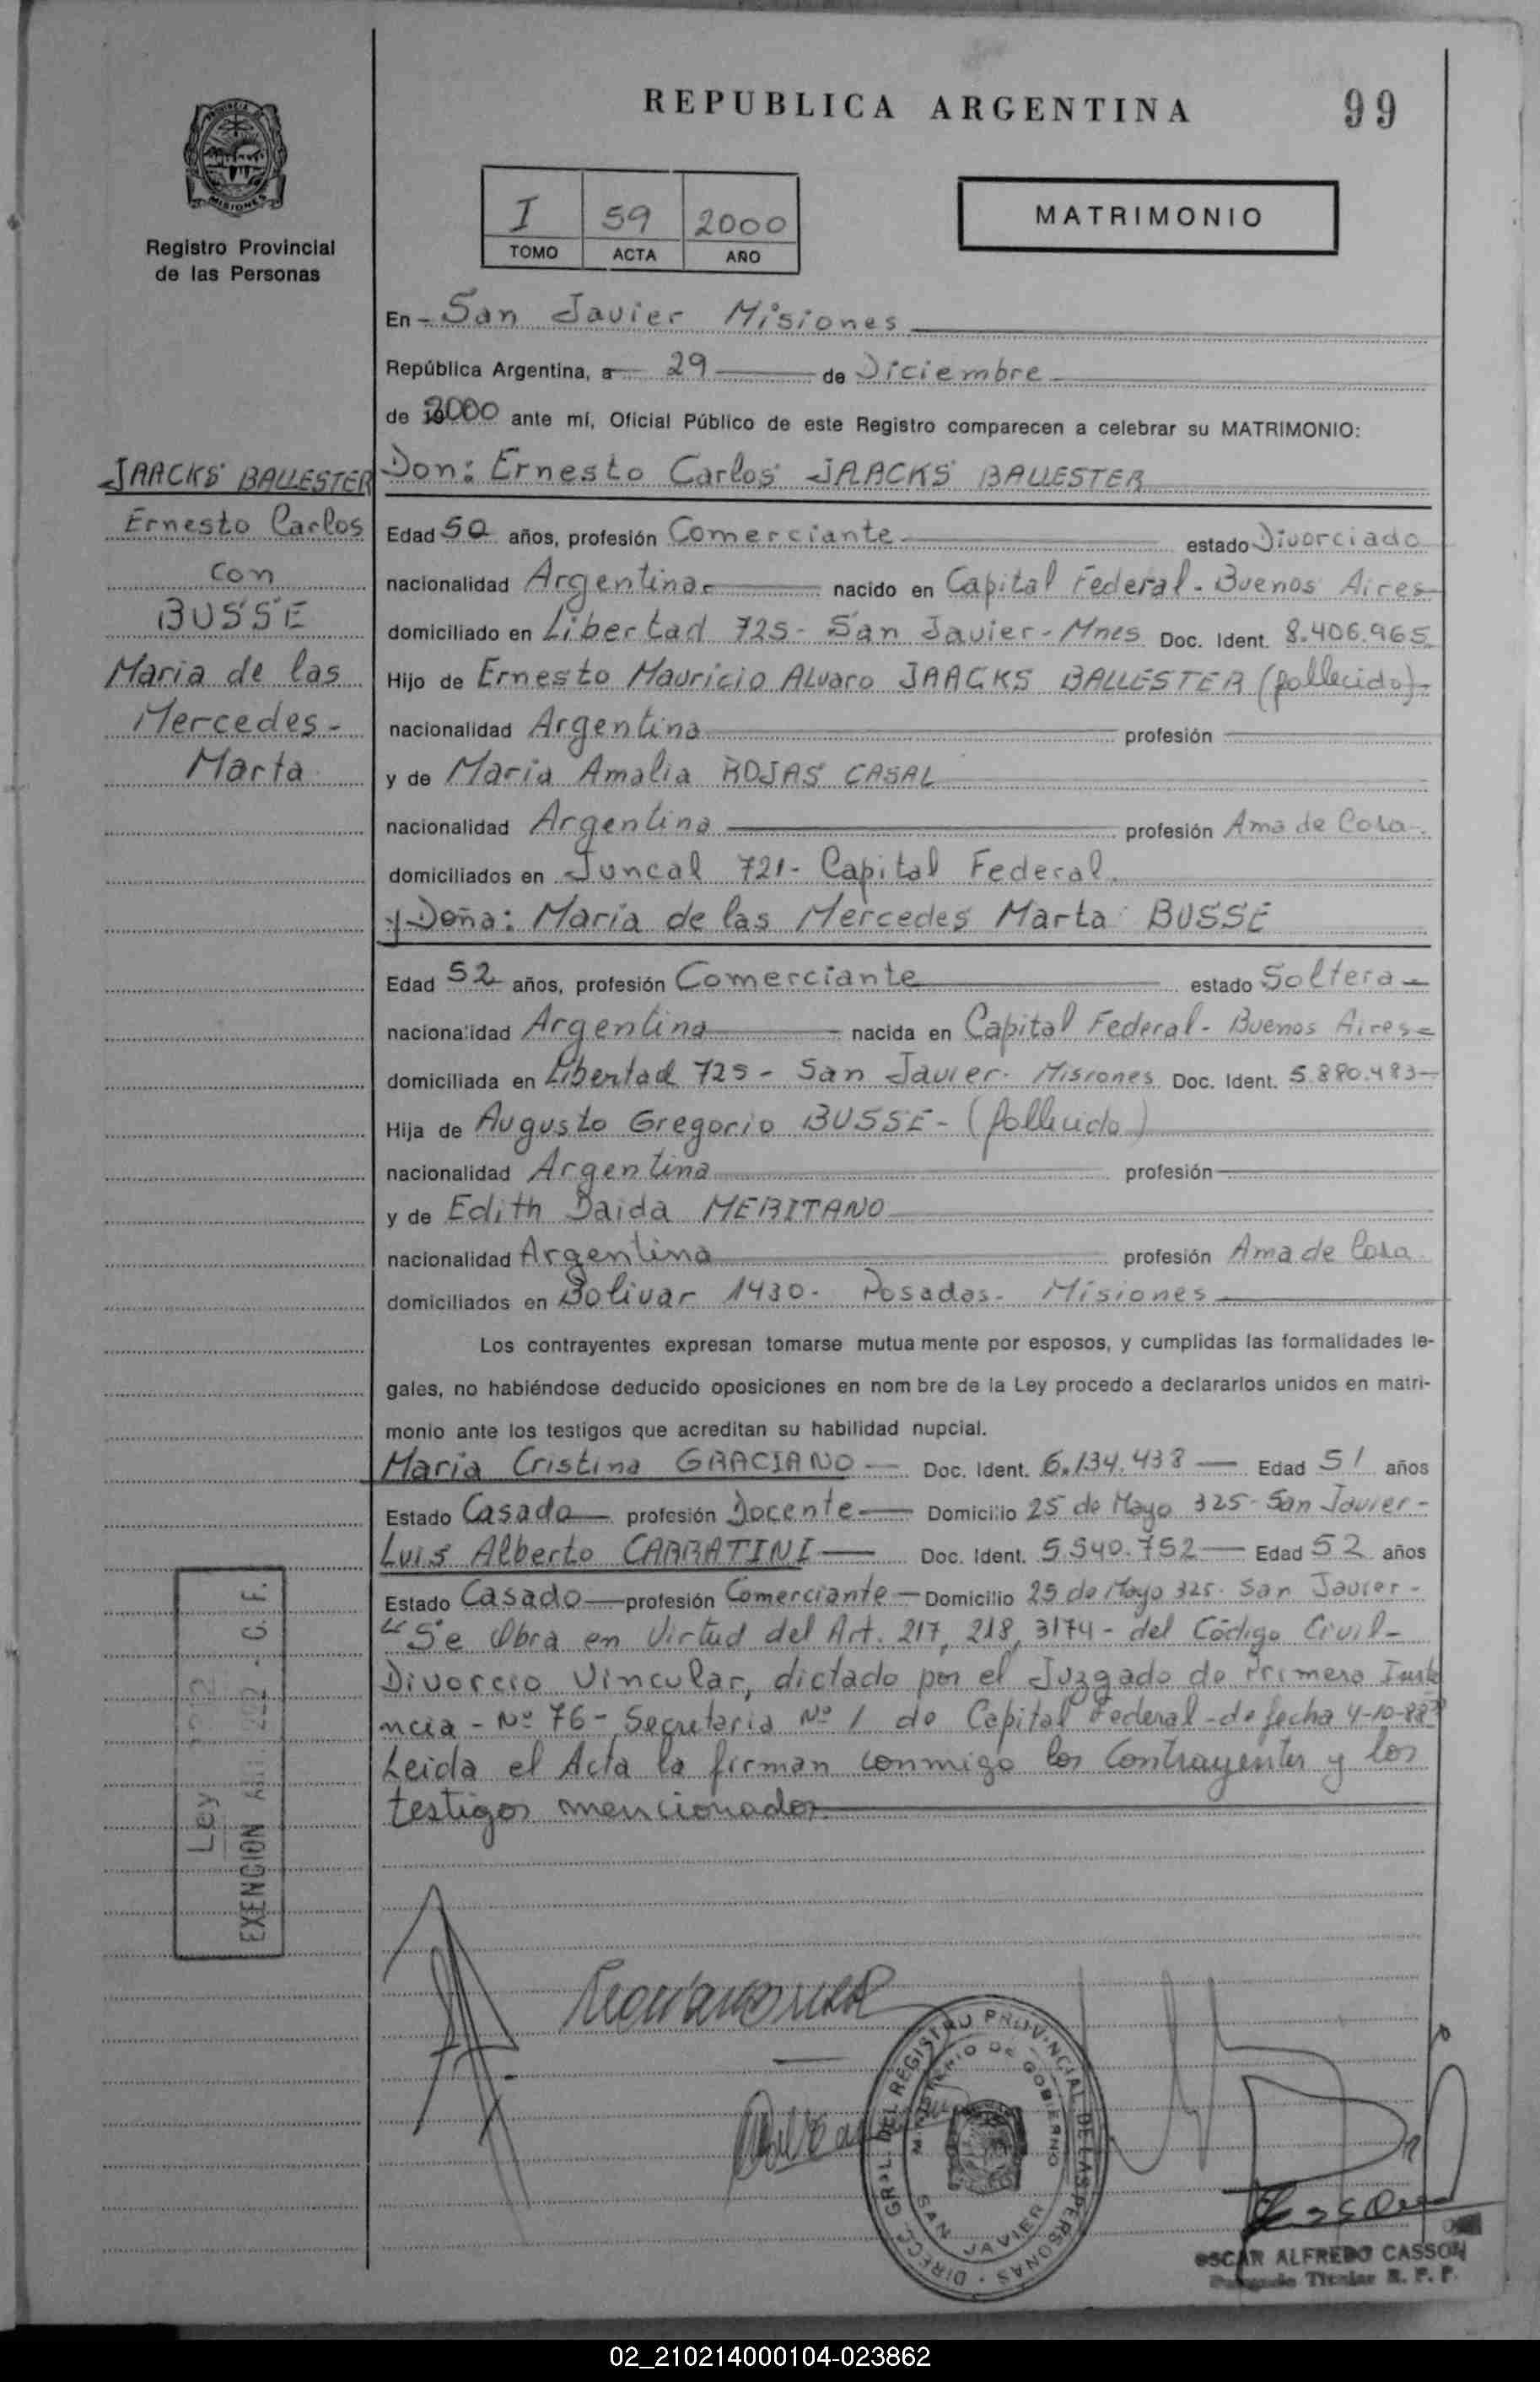 REPUBLICA ARGENTINA
99
PROVINCIA
MISIONES
Registro Provincial
de las Personas
I 59 2000
TOMO ACTA AÑO
MATRIMONIO
En - San Javier Misiones
República Argentina, a 29 de Diciembre
de 2000 ante mí, Oficial Público de este Registro comparecen a celebrar su MATRIMONIO:
JAACKS BALLESTER
Ernesto Carlos
con
BUSSE
Maria de las
Mercedes-
Marta
Don: Ernesto Carlos JAACKS BALLESTER
Edad 50 años, profesión Comerciante estado Divorciado
nacionalidad Argentina- nacido en Capital Federal - Buenos Aires
domiciliado en Libertad 725 - San Javier - Mnes Doc. Ident. 8.406.965
Hijo de Ernesto Mauricio Alvaro JAACKS BALLESTER (fallecido)-
nacionalidad Argentina profesión
y de Maria Amalia ROJAS CASAL
nacionalidad Argentina profesión Ama de Casa-
domiciliados en Juncal 721- Capital Federal.
y Doña: María de las Mercedes Marta BUSSE
Edad 52 años, profesión Comerciante estado Soltera-
nacionalidad Argentina nacida en Capital Federal - Buenos Aires-
domiciliada en Libertad 725 - San Javier - Misiones Doc. Ident. 5.880.483-
Hija de Augusto Gregorio BUSSE - (fallecido)
nacionalidad Argentina profesión
y de Edith Daida MERITANO
nacionalidad Argentina profesión Ama de Casa
domiciliados en Bolivar 1430- Posadas- Misiones
Los contrayentes expresan tomarse mutua mente por esposos, y cumplidas las formalidades le-
gales, no habiéndose deducido oposiciones en nom bre de la Ley procedo a declararlos unidos en matri-
monio ante los testigos que acreditan su habilidad nupcial.
Maria Cristina GRACIANO - Doc. Ident. 6.134.438 - Edad 51 años
Estado Casada profesión Docente - Domicilio 25 de Mayo 325- San Javier -
Luis Alberto CARRATINI - Doc. Ident. 5.540.752 - Edad 52 años
Estado Casado - profesión Comerciante - Domicilio 25 de Mayo 325- San Javier -
"Se Obra en Virtud del Art. 217, 218, 3174 - del Código Civil -
Divorcio Vincular, dictado por el Juzgado de Primera Insta
ncia - Nº 76 - Secretaria Nº 1 de Capital Federal - de fecha 4-10-88"
Leida el Acta la firman conmigo los Contrayentes y los
testigos mencionados
Ley
EXENCION
C. F.
DIRECC. GRAL. DEL REGISTRO PROVINCIAL DE LAS PERSONAS
MINISTERIO DE GOBIERNO
SAN JAVIER
OSCAR ALFREDO CASSON
Titular R. P. P.
02_210214000104-023862